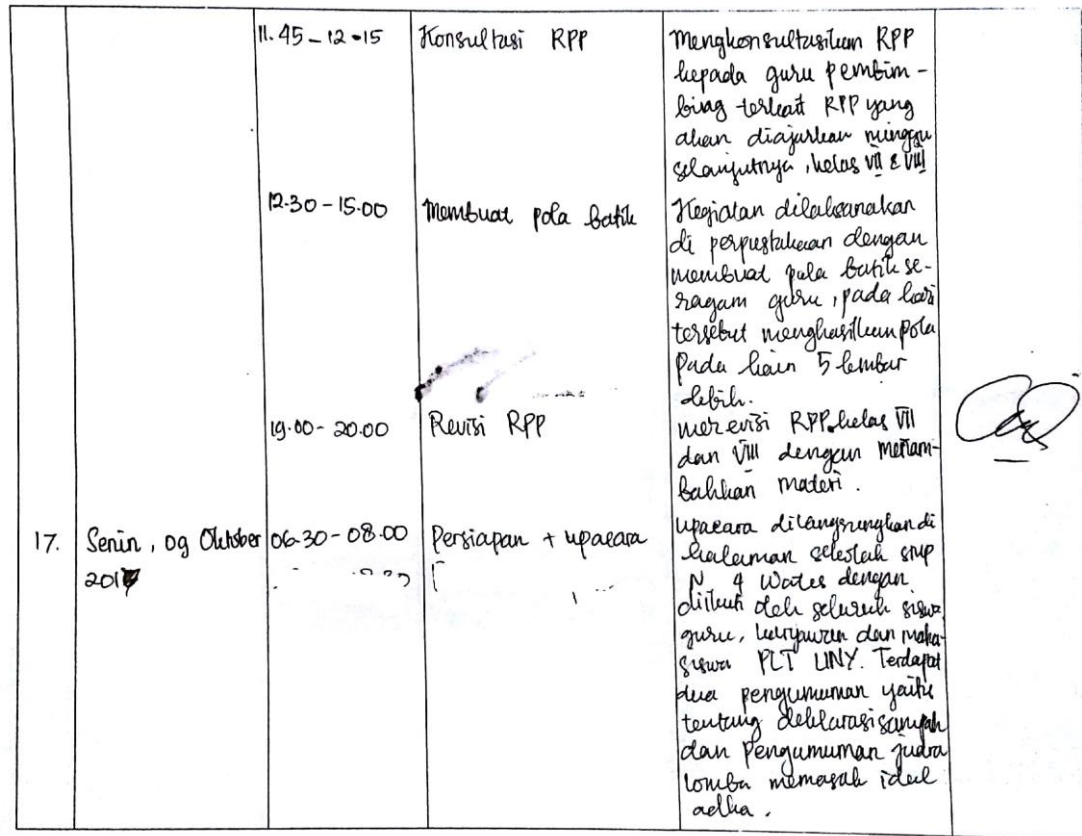 11.45 - 12.15
Konsultasi RPP
Mengkonsultasikan RPP
kepada guru pembim-
bing terkait RPP yang
akan diajarkan minggu
selanjutnya, kelas VII & VIII
12.30 - 15.00
Membuat pola batik
Kegiatan dilaksanakan
di perpustakaan dengan
membuat pola batik se-
ragam guru, pada hari
tersebut menghasilkan pola
pada kain 5 lembar
lebih.
19.00 - 20.00
Revisi RPP
merevisi RPP kelas VII
dan VIII dengan menam-
bahkan materi.
17.
Senin, 09 Oktober
2017
06.30 - 08.00
Persiapan + upacara
upacara dilangsungkan di
halaman sekolah smp
N 4 Wates dengan
diikuti oleh seluruh siswa,
guru, karyawan dan maha-
siswa PLT UNY. Terdapat
dua pengumuman yaitu
tentang deklarasi sampah
dan pengumuman juara
lomba memasak idul
adha.